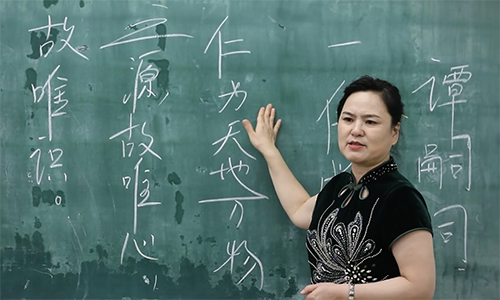 谭嗣同
仁
仁为天地万物
之源故唯心
故唯识。